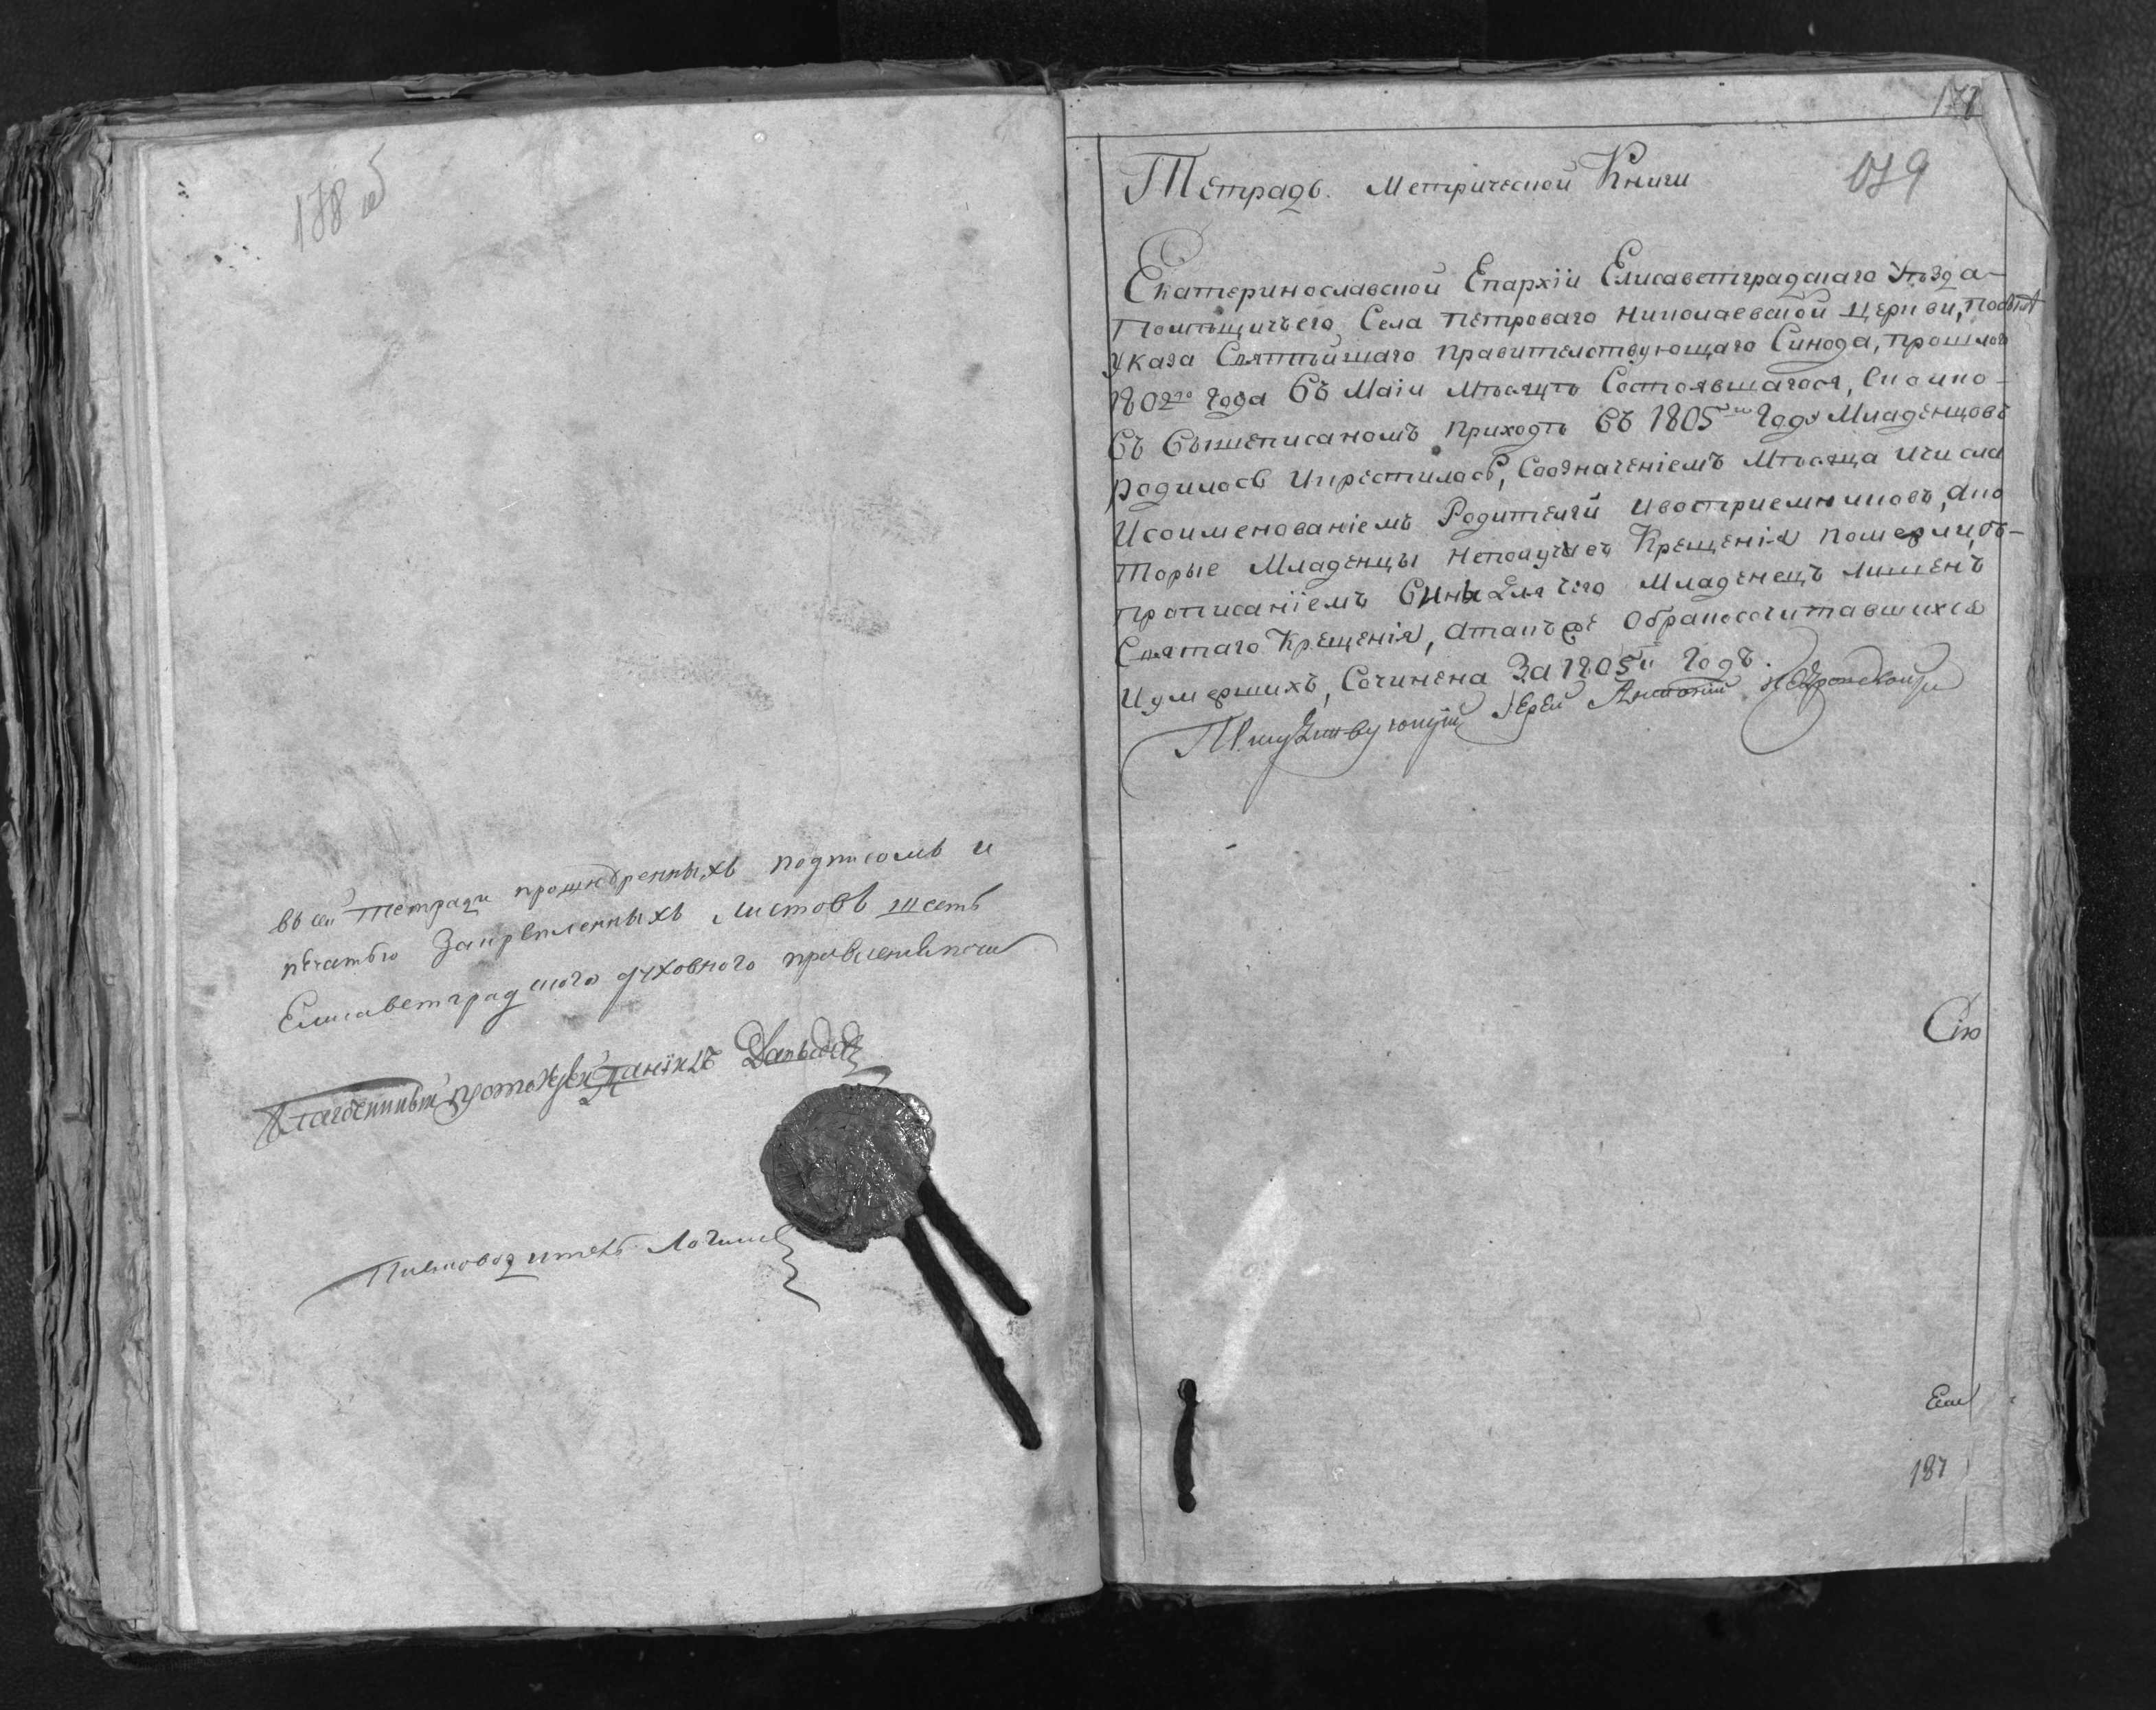 178 об
въ сей тетради прошнуренныхъ подписомъ и
печатью Закрѣпленныхъ листовъ шесть
Елисаветградского духовного правления
Благочинный протоиерей Даніилъ
179
Тетрадь Метрической Книги
Екатеринославской Епархіи Елисаветградскаго Уѣзда
Помѣщичьего Села Петроваго Николаевской Церкви,
Указа Святѣйшаго правителствующаго Синода, прошлого
1802го года Въ Маіи Мѣсяцѣ Состоявшагося, Сколко
Въ Вышеписаномъ приходѣ Въ 1805м Году Младенцовъ
родилось Икрестилось, Соозначеніемъ Мѣсяца Ичисла
Исоименованіемъ Родителей Ивоспріемниковъ, Ако
торые Младенцы Неполучивъ Крещенія померли, съ
прописаніемъ Вины Для чего Младенецъ лишенъ
Святаго Крещенія, Атакъже Обракосочитавшихся
Иумершихъ, Сочинена За 1805й Годъ.
Іерей Антоній
Сію
Ели
187